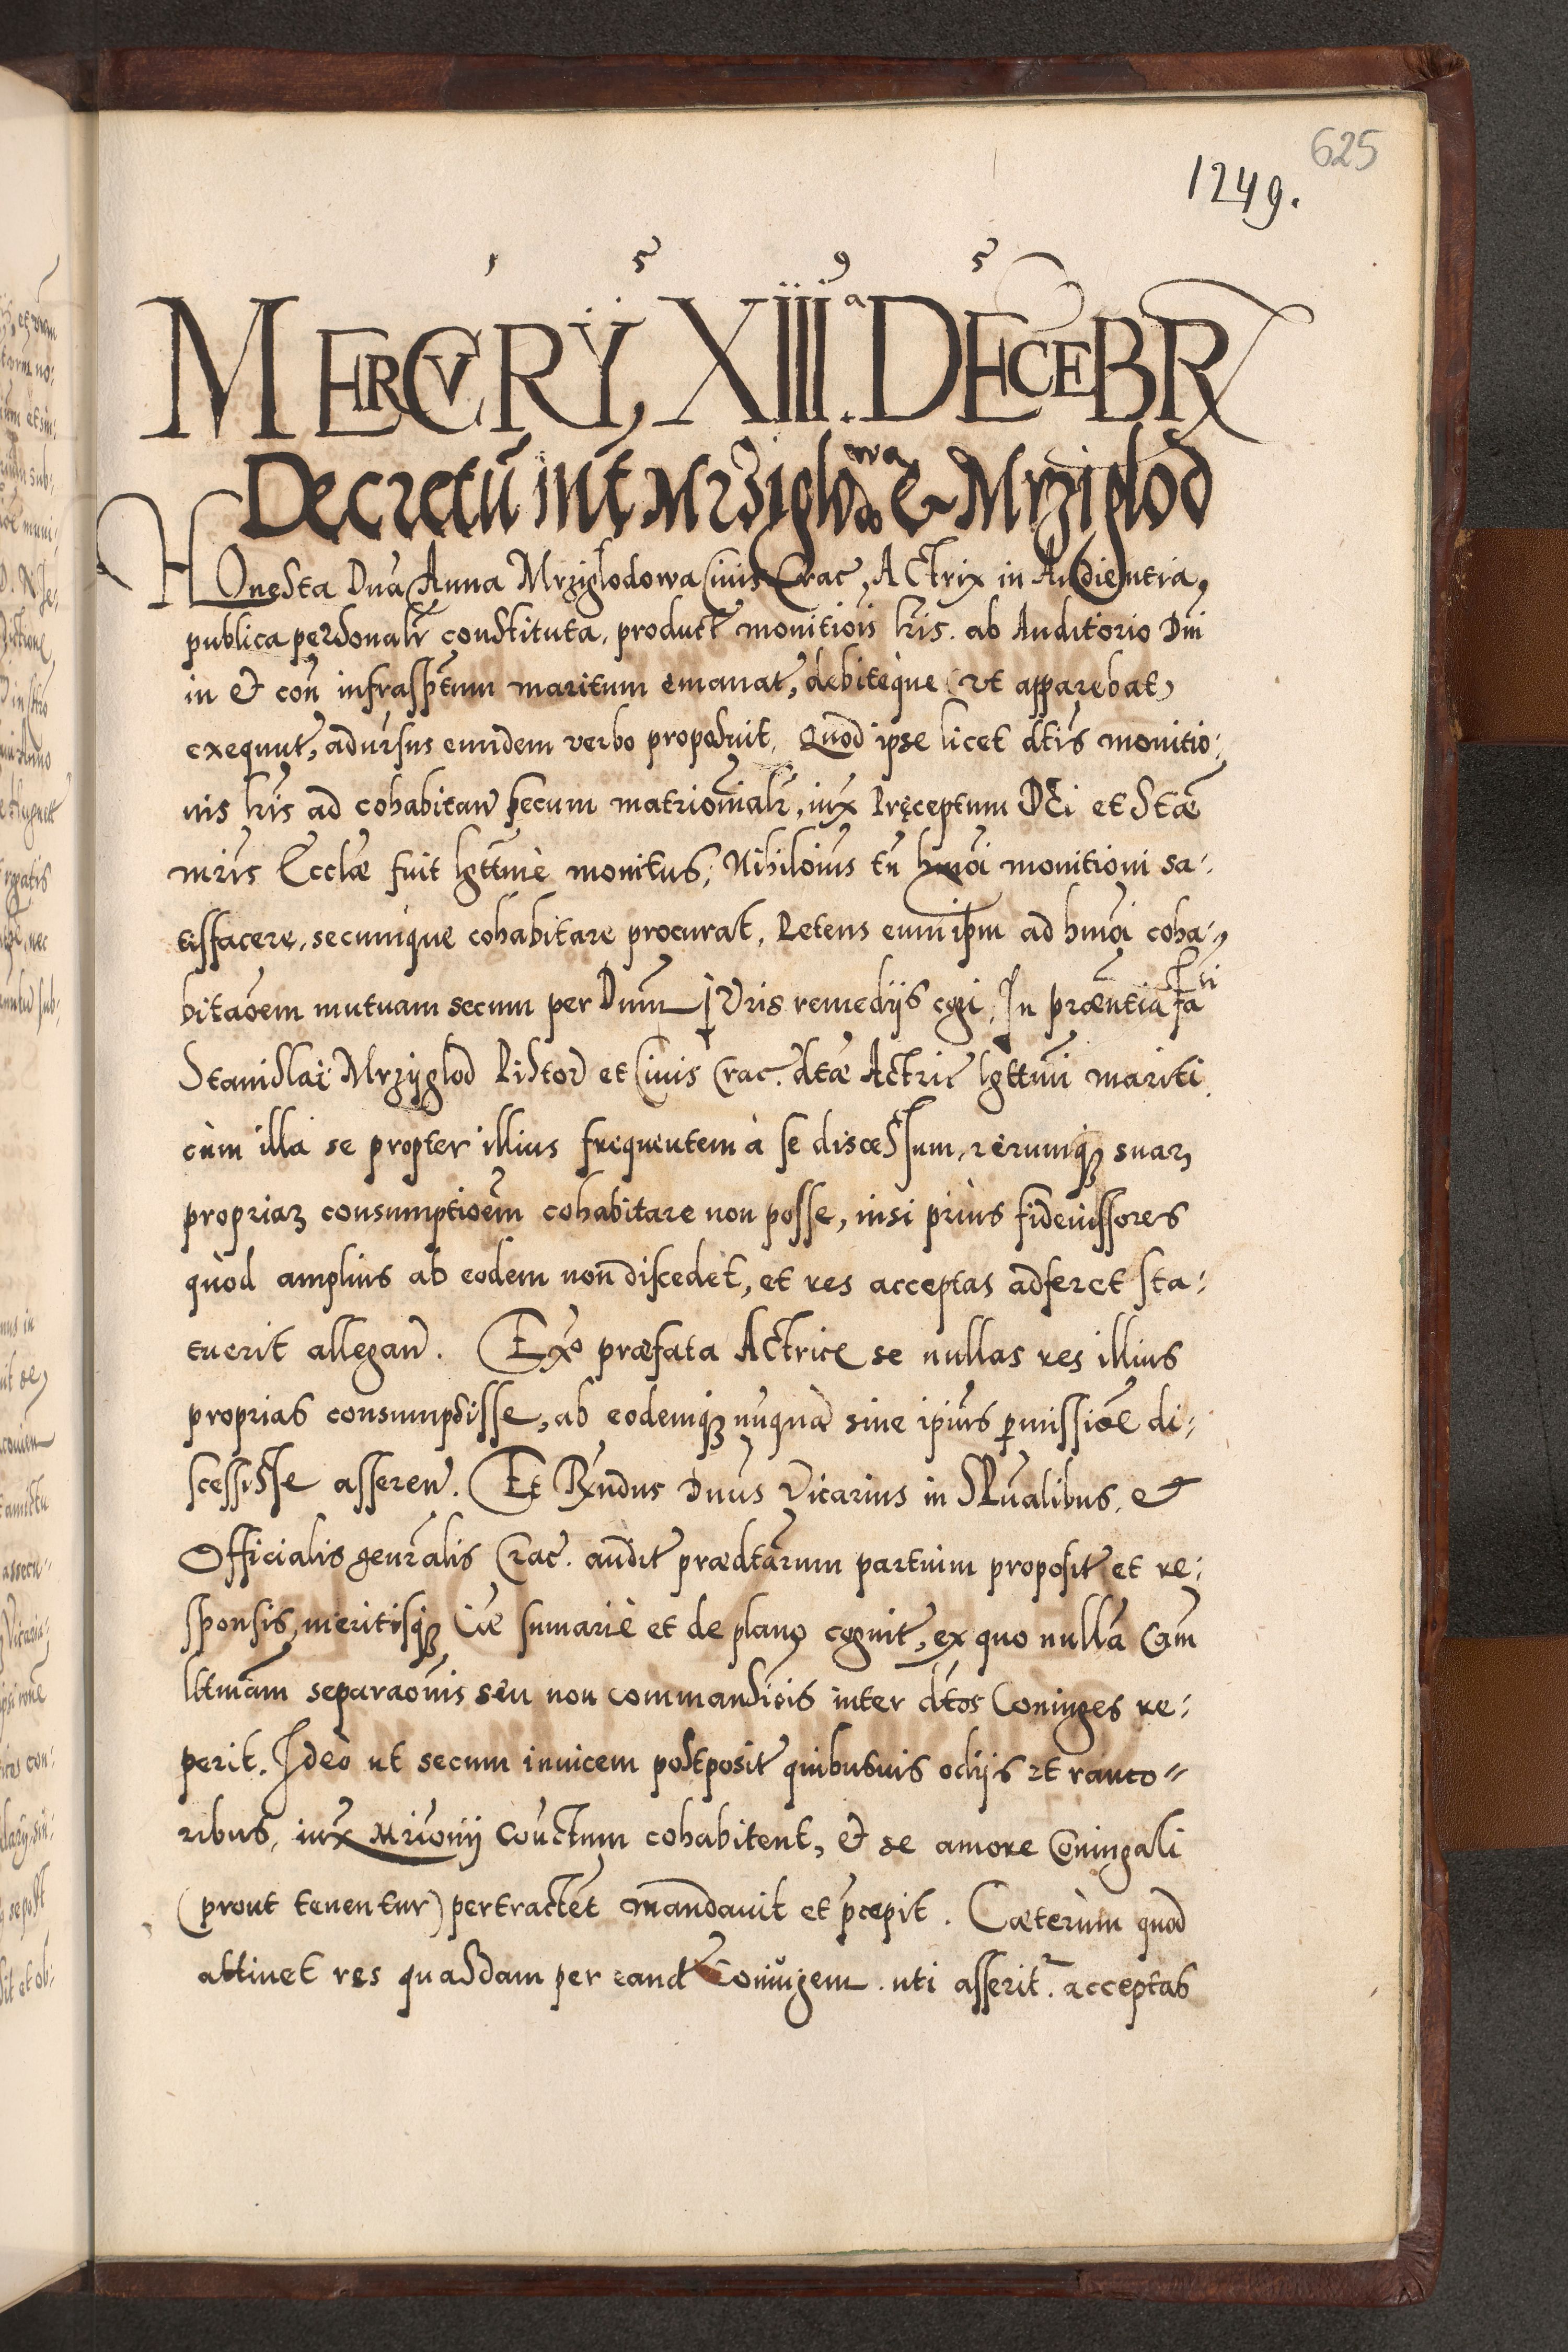 625
1249.
MERCVRŸ, XIII.ª DECEBR
Decretũ int Mrziglodowa & Mrziglod
HOnesta Dna Anna Mrziglodowa Ciuis Crac, Actrix in Audientia,
publica personalr constituta, product monitiois lris. ab Auditorio Dni
in & con infrasptum maritum emanat, debiteque (ut apparebat)
exequut, adursus eundem verbo proposuit, Quod ipse licet dtis monitio:
nis lris ad cohabitan secum matrionialr, iux Pręceptum DEi et Stæ
mris Ecclæ fuit lgttme monitus, Nihiloius tn hmoi monitioni sa:
tisfacere, secumque cohabitare procurat, Petens eum ipm ad hmoi coha:
bitaoem mutuam secum per Dnm iUris remedijs cogi, In præntia fa
Stanislai Mrzyglod Pistor et Ciuis Crac. dtæ Actric lgttmi mariti.
cùm illa se propter illius frequentem à se discessum, rerumq; suar
propriar consumptioem cohabitare non posse, nisi prius fideiussores
quòd amplius ab eodem non discedet, et res acceptas adferet sta:
tuerit allegan. Exo præfata Actrice se nullas res illius
proprias consumpsisse, ab eodemq; nuquà sine ipius pmissioe di:
scessisse asseren. Et Rndus Dnus Vicarius in SPualibus, &
Officialis genralis Crac. audit prædtarum partium proposit et re:
sponsis, meritisq; Cæ sumariè et de plano cognit, ex quo nullà Cam
lttmam separaonis seu non commansiois inter dtos Coniuges re:
perit. Ideò ut secum inuicem postposit quibusuis odijs et ranco:
ribus, iux Mrionij Couctum cohabitent, & se amore Coniugali
(prout tenentur) pertractent mandauit et pcepit. Cæterùm quod
attinet res quasdam per eand Coniugem. uti asserit. acceptas